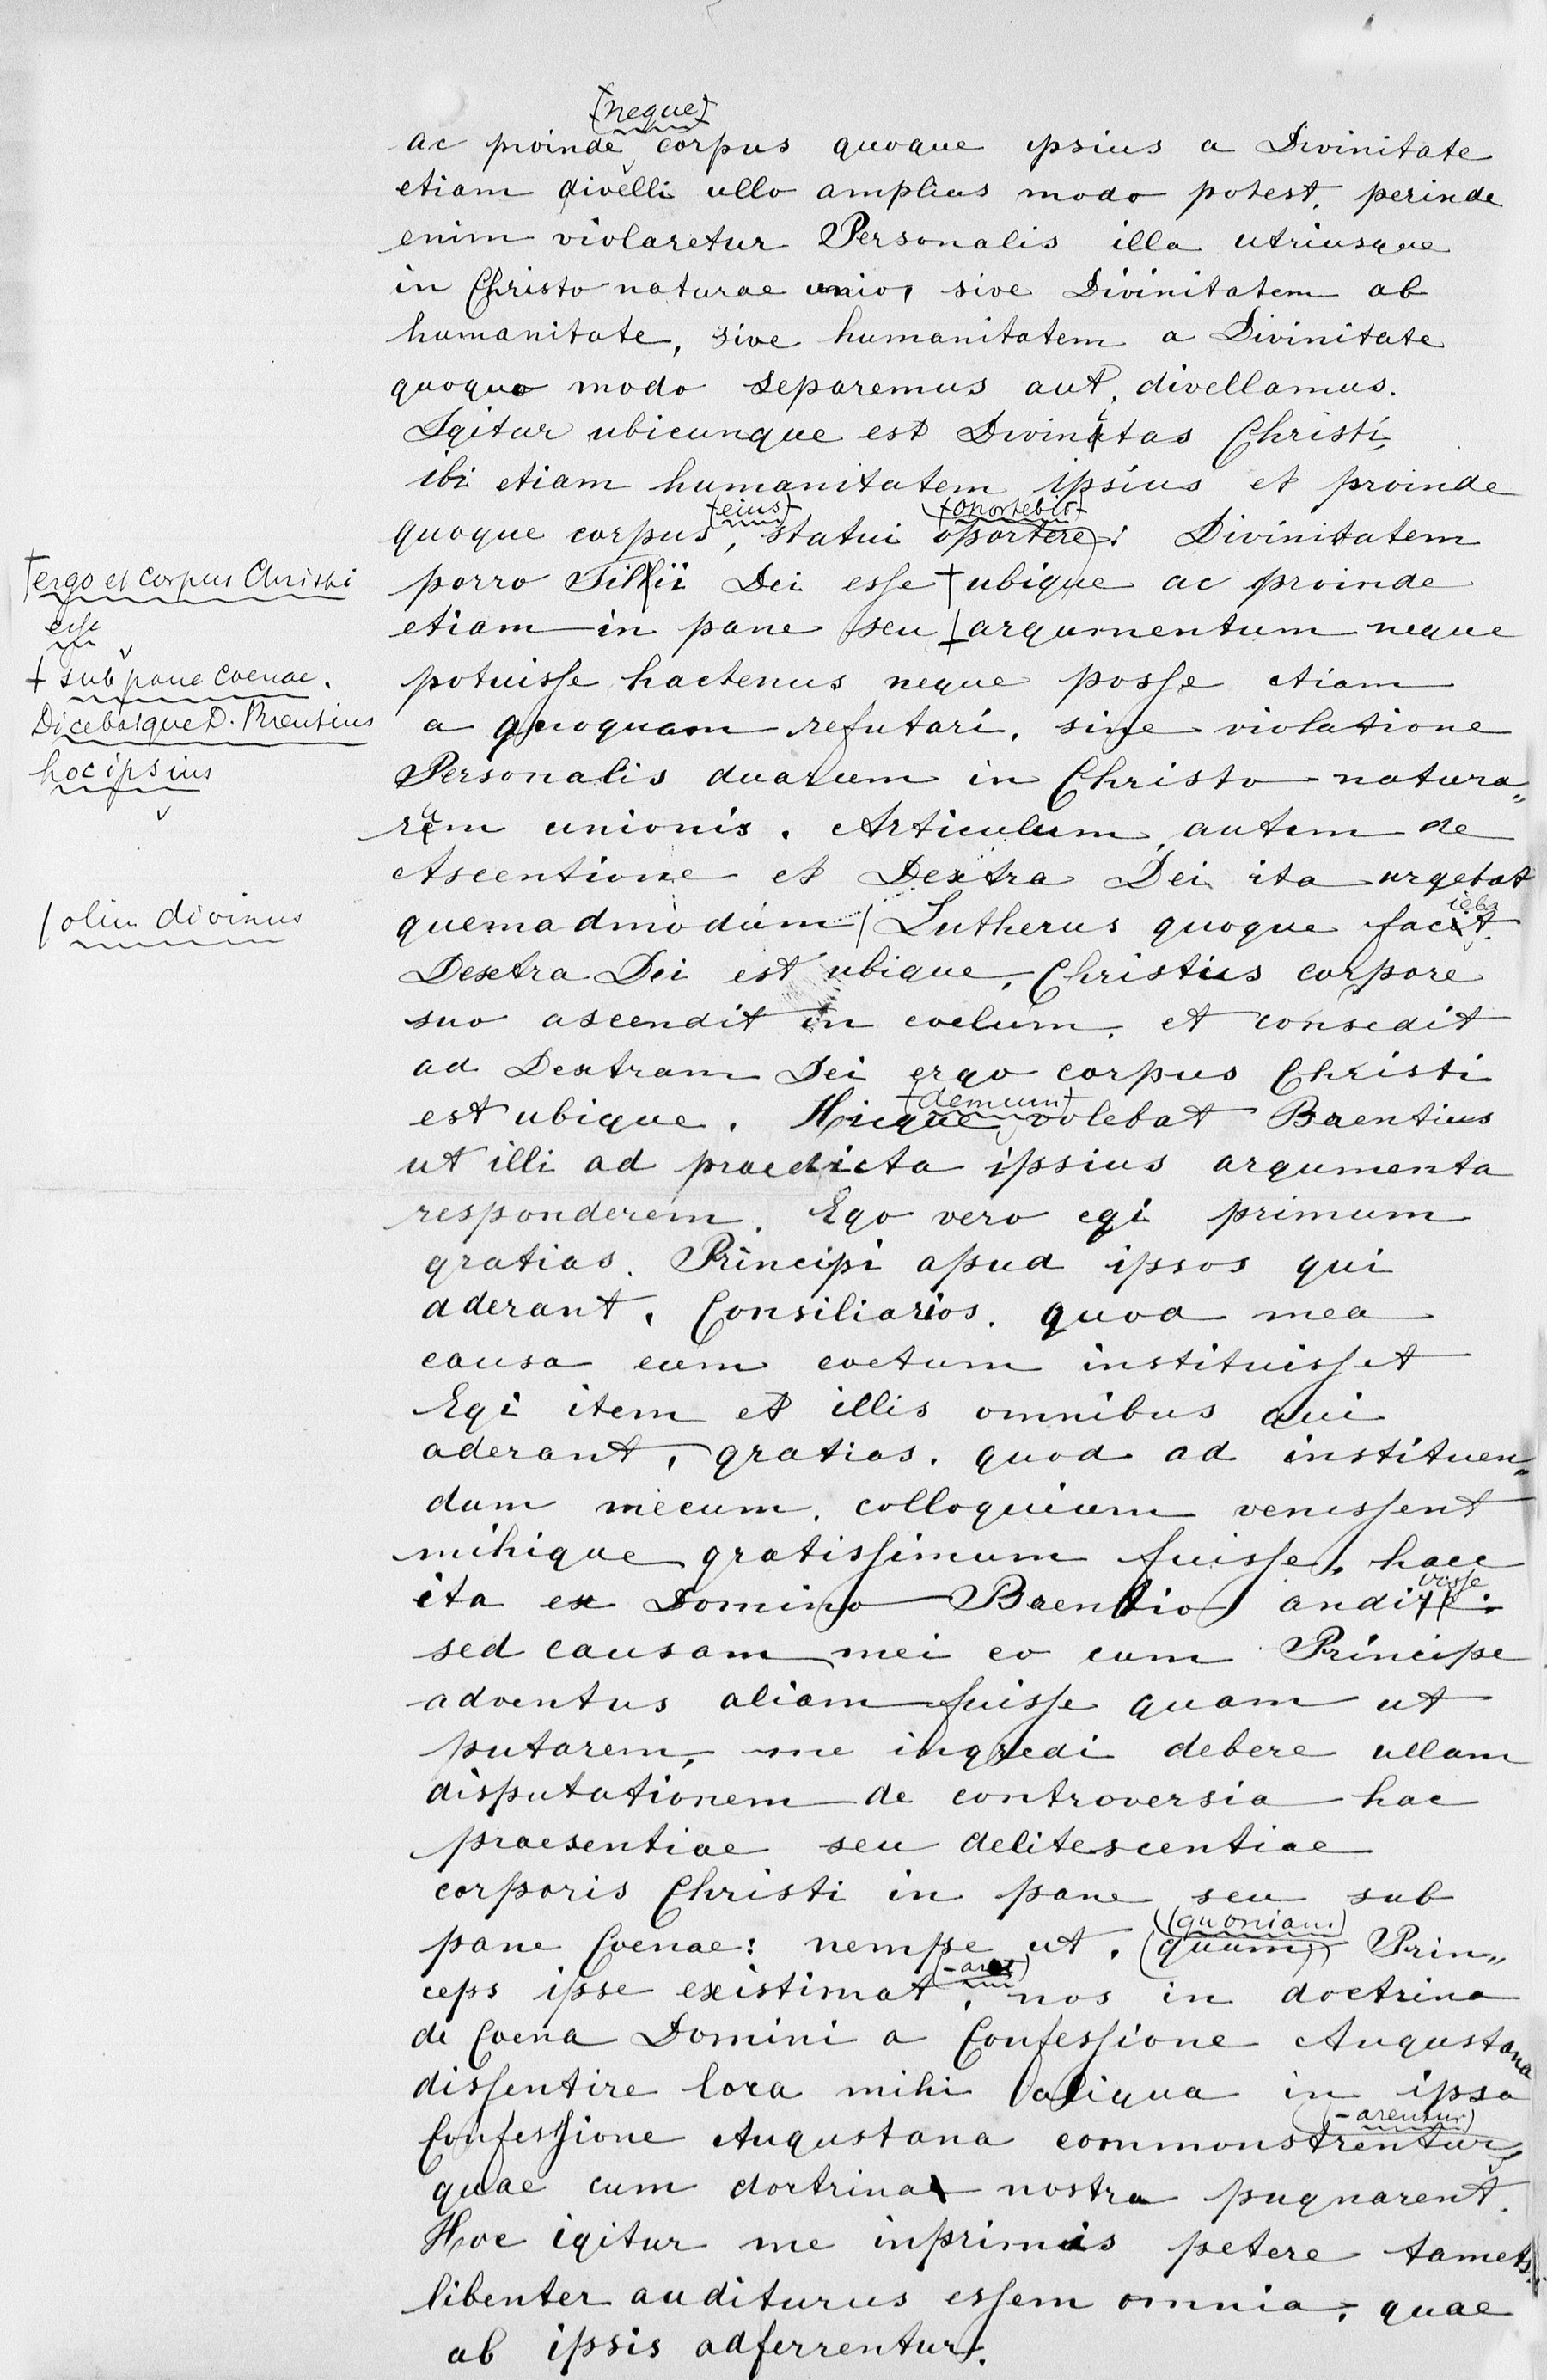 (neque)
ac proinde corpus quoque ipsius a Divinitate
etiam divelli ullo amplius modo potest, perinde
enim violaretur Personalis illa utriusque
in Christo naturae unio, sive Divinitatem ab
humanitate, sive humanitatem a Divinitate
quoquo modo separemus aut, divellamus.
Igitur ubicunque est Divinitas Christi,
ibi etiam humanitatem ipsius et proinde
+eius+ +oportebit+
quoque corpus, statui oportere: Divinitatem
+ergo et corpus Christi
porro Filii Dei esse + ubique ac proinde
esse
etiam in pane seu + argumentum neque
+ sub pane coenae.
potuisse hactenus neque posse etiam
Dicebatque D. Brentius
a quoquam refutari, sine violatione
hoc ipsius
Personalis duarum in Christo natura„
rum unionis. Articulum autem de
Ascentione et Dextra Dei ita urgebat
/olim divinus
quemadmodum / Lutherus quoque facit.
ieba
Dextra Dei est ubique, Christus corpore
suo ascendit in coelum, et consedit
ad Dextram Dei ergo corpus Christi
+demum+
est ubique. Hicque volebat Brentius
ut illi ad praedicta ipsius argumenta
responderem. Ego vero egi primum
gratias, Principi apud ipsos qui
aderant, Consiliarios, quod mea
causa eum coetum instituisset
Egi item et illis omnibus qui
aderant, gratias, quod ad instituen„
dum mecum, colloquium venissent
mihique gratissimum fuisse, haec
visse
ita ex Domino Brentio audite.
sed causam mei eo cum Principe
adventus aliam fuisse quam ut
putarem, me ingredi debere ullam
disputationem de controversia hac
praesentiae seu delitescentiae
corporis Christi in pane seu sub
(quoniam)
pane Coenae: nempe ut, (quum) Prin„
(-aret)
ceps ipse existimat, nos in doctrina
de Coena Domini a Confessione Augustana
dissentire loca mihi aliqua in ipsa
(-arentur)
Confessione Augustana commonstrentur,
quae cum doctrina nostra pugnarent.
Hoc igitur me inprimis petere tamets.
libenter auditurus essem omnia, quae
ab ipsis adferrentur.